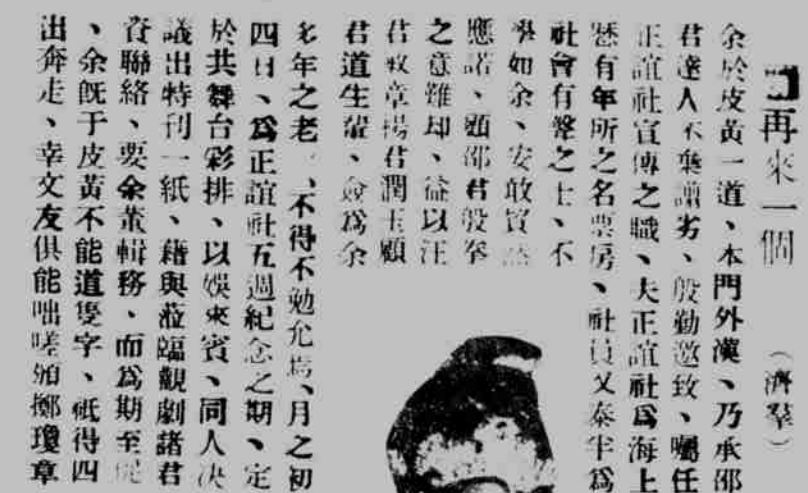 再來一個
（濟羣）
余於皮黃一道、本門外漢、乃承邵
君達人不棄譾劣、殷勤邀致、囑任
正誼社宣傳之職、夫正誼社爲海上
歷有年所之名票房、社員又泰半爲
社會有聲之士、不
學如余、安敢貿然
應諾、顧邵君殷拳
之意難却、益以汪
君
章楊君潤玉顧
君道生輩、僉爲余
多年之老
、不得不勉允焉、月之初
四日、爲正誼社五週紀念之期、定
於共舞台彩排、以娛來賓、同人决
議出特刊一紙、藉與蒞臨觀劇諸君
資聯絡、要余董輯務、而爲期至促
、余旣于皮黃不能道隻字、祇得四
出奔走、幸文友俱能咄嗟頒擲瓊章